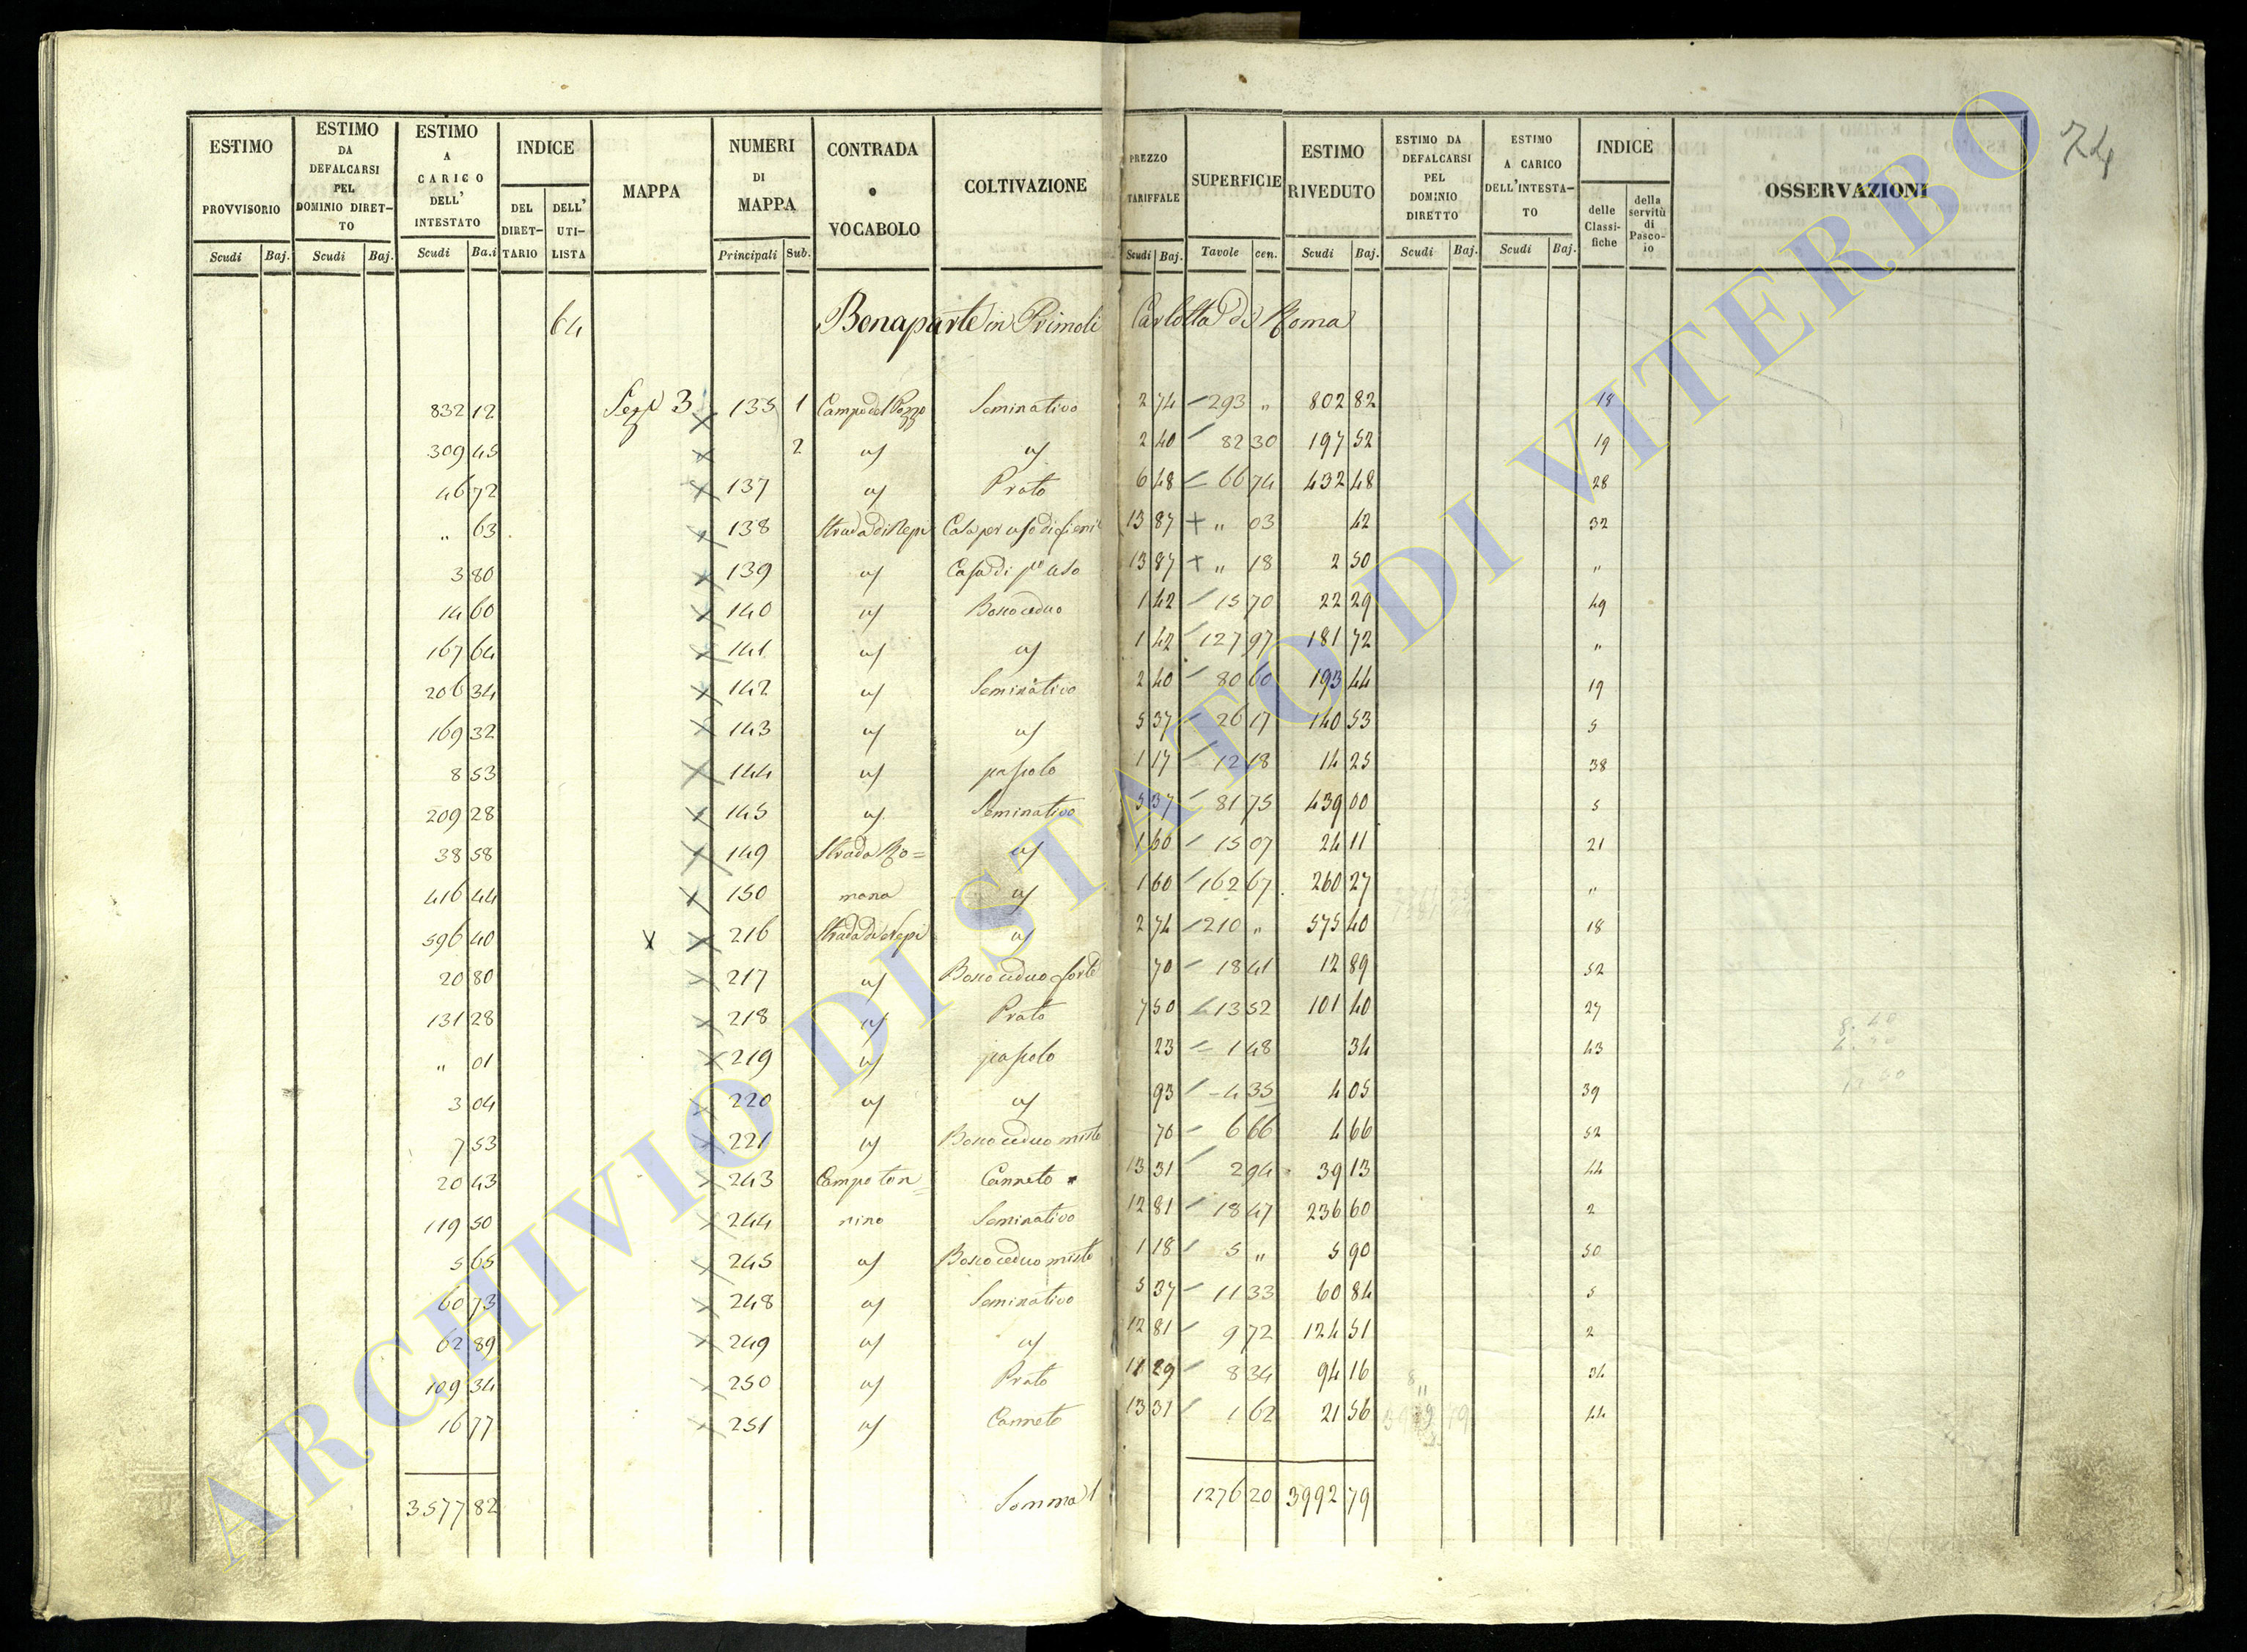 74
ESTIMO PROVVISORIO | ESTIMO DA DEFALCARSI PEL DOMINIO DIRETTO | ESTIMO A CARICO DELL' INTESTATO | INDICE | MAPPA | NUMERI DI MAPPA | CONTRADA o VOCABOLO | COLTIVAZIONE | PREZZO TARIFFALE | SUPERFICIE | ESTIMO RIVEDUTO | ESTIMO DA DEFALCARSI PEL DOMINIO DIRETTO | ESTIMO A CARICO DELL'INTESTATO | INDICE | OSSERVAZIONI
DEL DIRETTARIO | DELL' UTILISTA | delle Classifiche | della servitù di Pascoio
Scudi | Baj. | Scudi | Baj. | Scudi | Ba.i | Principali | Sub. | Scudi | Baj. | Tavole | cen. | Scudi | Baj. | Scudi | Baj. | Scudi | Baj.
64 Bonaparte in Primoli Carlotta di Roma
832 12 Seze 3 135 1 Campo del Pozzo Seminativo 2 74 293 " 802 82 18
309 45 2 id id 2 40 82 30 197 52 19
46 72 137 id Prato 6 48 66 74 432 48 28
" 63 138 Strada di Nepi Casa per uso di fieni 13 87 " 03 42 32
3 80 139 id Casa di pio uso 13 87 " 18 2 50 "
14 60 140 id Bosco ceduo 1 42 15 70 22 29 49
167 64 141 id id 1 42 127 97 181 72 "
206 34 142 id Seminativo 2 40 80 60 193 44 19
169 32 143 id id 5 37 26 17 140 53 5
8 53 144 id pascolo 1 17 12 18 14 25 38
209 28 145 id Seminativo 5 37 81 75 439 00 5
38 58 149 Strada Ro= id 1 60 15 07 24 11 21
416 44 150 mana id 1 60 162 67 260 27 "
596 40 216 Strada di Nepi id 2 74 210 " 575 40 18
20 80 217 id Bosco ceduo forte 70 18 41 12 89 52
131 28 218 id Prato 7 50 13 52 101 40 27
" 01 219 id pascolo 23 1 48 34 43
3 04 220 id id 93 4 35 4 05 39
7 53 221 id Bosco ceduo misto 70 6 66 4 66 52
20 43 243 Campo ton= Canneto 13 31 2 94 39 13 44
119 50 244 nino Seminativo 12 81 18 47 236 60 2
5 65 245 id Bosco ceduo misto 1 18 5 " 5 90 50
60 73 248 id Seminativo 5 37 11 33 60 84 5
62 89 249 id id 12 81 9 72 124 51 2
109 34 250 id Prato 11 29 8 34 94 16 34
16 77 251 id Canneto 13 31 1 62 21 56 44
3577 82 Somma 1276 20 3992 79
ARCHIVIO DI STATO DI VITERBO